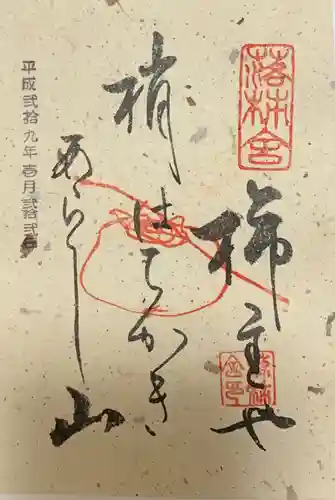 落柿舎
柿主や
梢はちかき
あらし山
平成弐拾九年壱月弐拾弐日